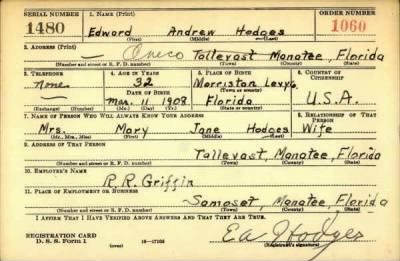 SERIAL NUMBER 1. NAME (Print) ORDER NUMBER
1480 Edward Andrew Hodges 1060
(First) (Middle) (Last)
2. ADDRESS (Print)
Oneco Tallevast Manatee, Florida
(Number and street or R. F. D. number) (Town) (County) (State)
3. TELEPHONE 4. AGE IN YEARS 5. PLACE OF BIRTH 6. COUNTRY OF CITIZENSHIP
None 32 Morriston Levy Co.
DATE OF BIRTH (Town or county)
Mar. 11 1908 Florida U.S.A.
(Exchange) (Number) (Mo.) (Day) (Yr.) (State or country)
7. NAME OF PERSON WHO WILL ALWAYS KNOW YOUR ADDRESS 8. RELATIONSHIP OF THAT PERSON
Mrs. Mary Jane Hodges Wife
(Mr., Mrs., Miss) (First) (Middle) (Last)
9. ADDRESS OF THAT PERSON
Tallevast, Manatee, Florida
(Number and street or R. F. D. number) (Town) (County) (State)
10. EMPLOYER'S NAME
R.R. Griffin
11. PLACE OF EMPLOYMENT OR BUSINESS
Samoset, Manatee, Florida
(Number and street or R. F. D. number) (Town) (County) (State)
I AFFIRM THAT I HAVE VERIFIED ABOVE ANSWERS AND THAT THEY ARE TRUE.
REGISTRATION CARD
D. S. S. Form 1 (over) 16—17105 (Registrant's signature)
Ea Hodges